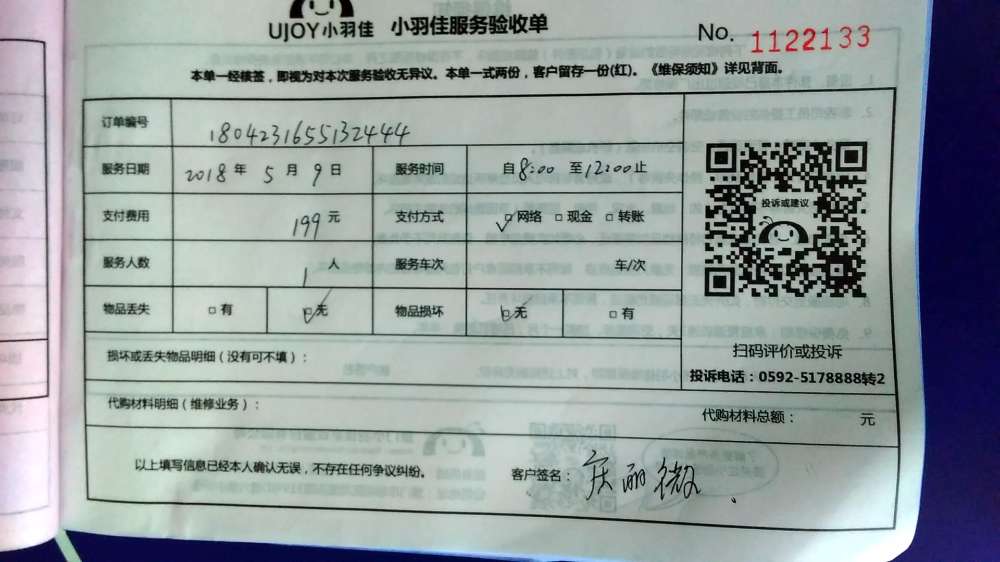 UJOY小羽佳 小羽佳服务验收单
No. 1122133
本单一经核签,即视为对本次服务验收无异议。本单一式两份,客户留存一份(红)。《维保须知》详见背面。
订单编号 1804231655132444
服务日期 2018年5月9日 服务时间 自8:00至12:00止
支付费用 199元 支付方式 ☑网络 □现金 □转账
投诉或建议
服务人数 1人 服务车次 车/次
物品丢失 □有 ☑无 物品损坏 ☑无 □有
扫码评价或投诉
损坏或丢失物品明细(没有可不填):
投诉电话:0592-5178888转2
代购材料明细(维修业务): 代购材料总额: 元
以上填写信息已经本人确认无误,不存在任何争议纠纷。 客户签名: 丽微